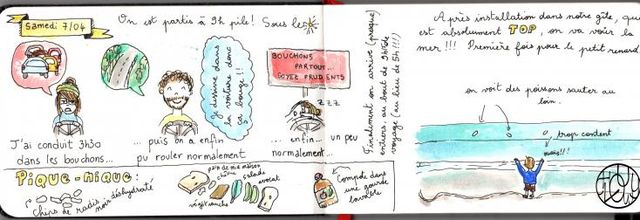 Samedi 7/04
On est partis à 9h pile! Sous le
J'ai conduit 3h30
dans les bouchons...
... puis on a enfin
pu rouler normalement
Je dessine dans
la voiture donc
ça bouge!!
BOUCHONS
PARTOUT...
SOYEZ PRUDENTS
ZZZ
... enfin... un peu
normalement...
Pique-nique:
Chips de radis
noir déshydraté
pain de mie maison
salade
avocat
Compote dans
une gourde
lavable
Finalement on arrive (presque)
entiers au bout de 9h de
voyage (au lieu de 5h!!!)
Après installation dans notre gîte, qui
est absolument TOP, on va voir la
mer!!! Première fois pour le petit renard
on voit des poissons sauter au
loin.
trop content